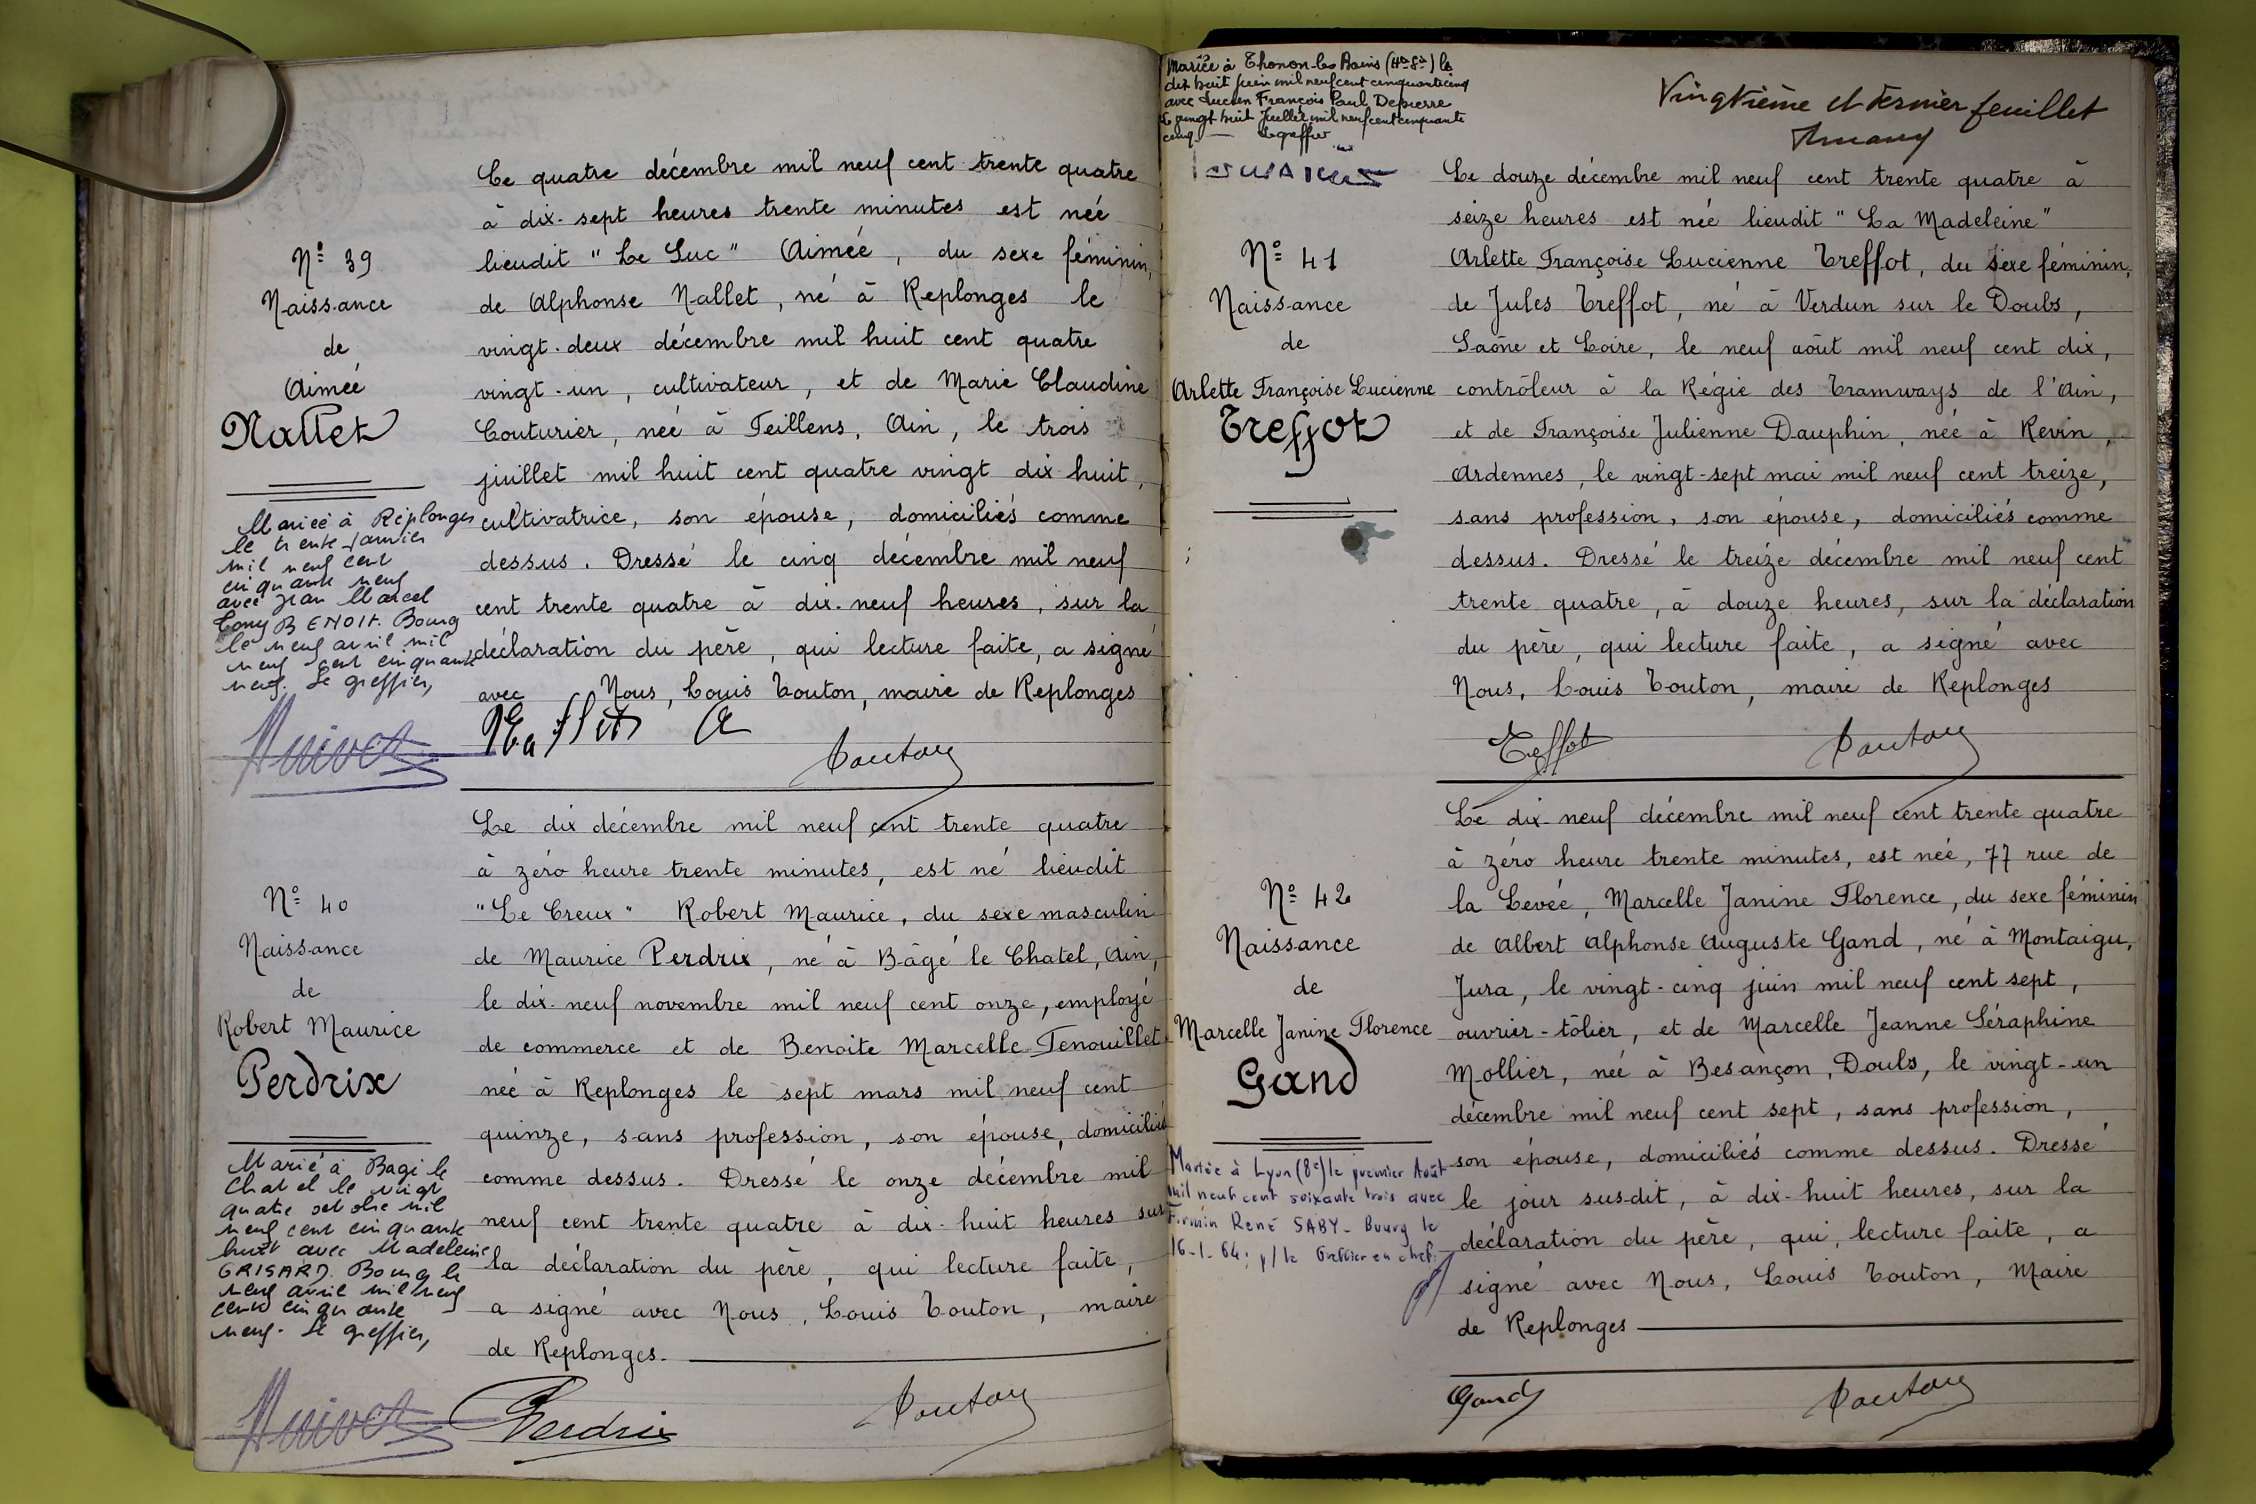 Nº 39
Naissance
de
Aimée
Nallet
Mariée à Replonges
le trente janvier
mil neuf cent
cinquante neuf
avec Jean Marcel
Tony BENOIT. Bourg
le neuf avril mil
neuf cent cinquante
neuf. Le greffier,
Le quatre décembre mil neuf cent trente quatre
à dix-sept heures trente minutes est née
lieudit "Le Luc" Aimée, du sexe féminin,
de Alphonse Nallet, né à Replonges le
vingt-deux décembre mil huit cent quatre
vingt-un, cultivateur, et de Marie Claudine
Couturier, née à Feillens, Ain, le trois
juillet mil huit cent quatre vingt dix huit,
cultivatrice, son épouse, domiciliés comme
dessus. Dressé le cinq décembre mil neuf
cent trente quatre à dix-neuf heures, sur la
déclaration du père, qui lecture faite, a signé
avec Nous, Louis Touton, maire de Replonges
Nallet A
Touton
Nº 40
Naissance
de
Robert Maurice
Perdrix
Marié à Bagé le
Chatel le vingt
quatre octobre mil
neuf cent cinquante
huit avec Madeleine
GRISARD. Bourg le
neuf avril mil neuf
cent cinquante
neuf. Le greffier,
Le dix décembre mil neuf cent trente quatre
à zéro heure trente minutes, est né lieudit
"Le Creux" Robert Maurice, du sexe masculin
de Maurice Perdrix, né à Bâgé le Chatel, Ain,
le dix-neuf novembre mil neuf cent onze, employé
de commerce et de Benoite Marcelle Tenouillet
née à Replonges le sept mars mil neuf cent
quinze, sans profession, son épouse, domiciliés
comme dessus. Dressé le onze décembre mil
neuf cent trente quatre à dix-huit heures sur
la déclaration du père, qui lecture faite,
a signé avec Nous, Louis Touton, maire
de Replonges.
Perdrix
Touton
Vingtième et dernier feuillet
Mariée à Thonon-les-Bains (Hte Sie) le
dix huit juin mil neuf cent cinquante cinq
avec Lucien François Paul Depierre
Le vingt huit juillet mil neuf cent cinquante
cinq - Le greffier
Nº 41
Naissance
de
Arlette Françoise Lucienne
Treffot
Le douze décembre mil neuf cent trente quatre à
seize heures est née lieudit "La Madeleine"
Arlette Françoise Lucienne Treffot, du sexe féminin,
de Jules Treffot, né à Verdun sur le Doubs,
Saône et Loire, le neuf août mil neuf cent dix,
contrôleur à la Régie des Tramways de l'Ain,
et de Françoise Julienne Dauphin, née à Revin,
Ardennes, le vingt-sept mai mil neuf cent treize,
sans profession, son épouse, domiciliés comme
dessus. Dressé le treize décembre mil neuf cent
trente quatre, à douze heures, sur la déclaration
du père, qui lecture faite, a signé avec
Nous, Louis Touton, maire de Replonges
Treffot
Touton
Nº 42
Naissance
de
Marcelle Janine Florence
Gand
Mariée à Lyon (8e) le premier Août
mil neuf cent soixante trois avec
Firmin René SABY - Bourg le
16-1-64; p/ le Greffier en chef:
Le dix-neuf décembre mil neuf cent trente quatre
à zéro heure trente minutes, est née, 77 rue de
la Levée, Marcelle Janine Florence, du sexe féminin
de Albert Alphonse Auguste Gand, né à Montaigu,
Jura, le vingt-cinq juin mil neuf cent sept,
ouvrier-tôlier, et de Marcelle Jeanne Séraphine
Mollier, née à Besançon, Doubs, le vingt-un
décembre mil neuf cent sept, sans profession,
son épouse, domiciliés comme dessus. Dressé
le jour susdit, à dix-huit heures, sur la
déclaration du père, qui, lecture faite, a
signé avec Nous, Louis Touton, Maire
de Replonges
Gand
Touton